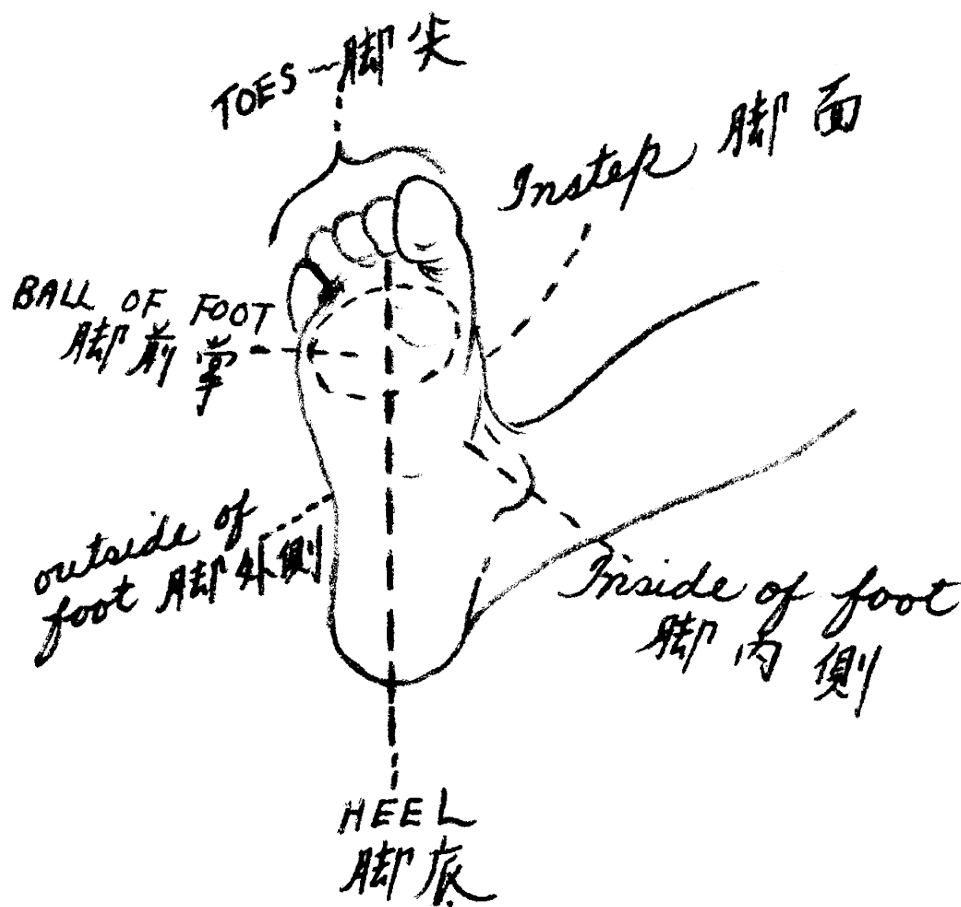 TOES-脚尖
Instep 脚面
BALL OF FOOT
脚前掌
outside of
foot 脚外側
Inside of foot
脚内側
HEEL
脚底